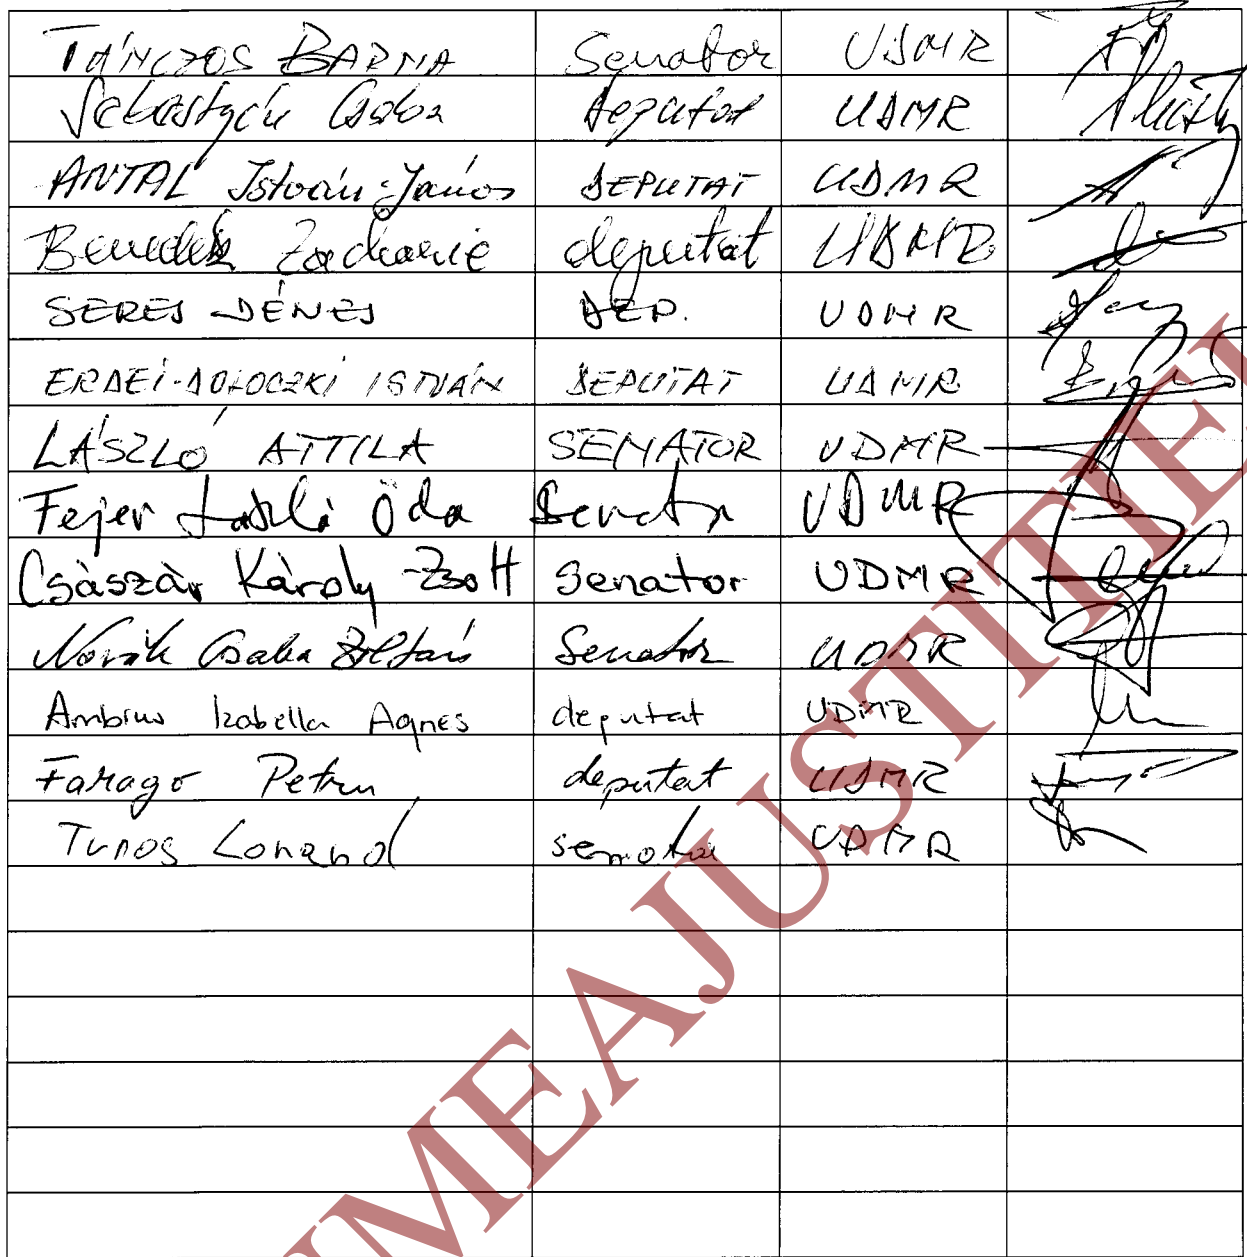 TÁNCZOS BARNA Senator UDMR
Sebestyén Csaba deputat UDMR
ANTAL István-János DEPUTAT UDMR
Benedek Zacharie deputat UDMR
SERES DÉNES DEP. UDMR
ERDEI-DOLOCZKI ISTVÁN DEPUTAT UDMR
LÁSZLÓ ATTILA SENATOR UDMR
Fejer László Ödö Senator UDMR
Császár Károly-Zsolt Senator UDMR
Novák Csaba Zoltán Senator UDMR
Ambrus Izabella Agnes deputat UDMR
Farago Petru deputat UDMR
Turos Lorand senator UDMR
MEAJUSTITIEI